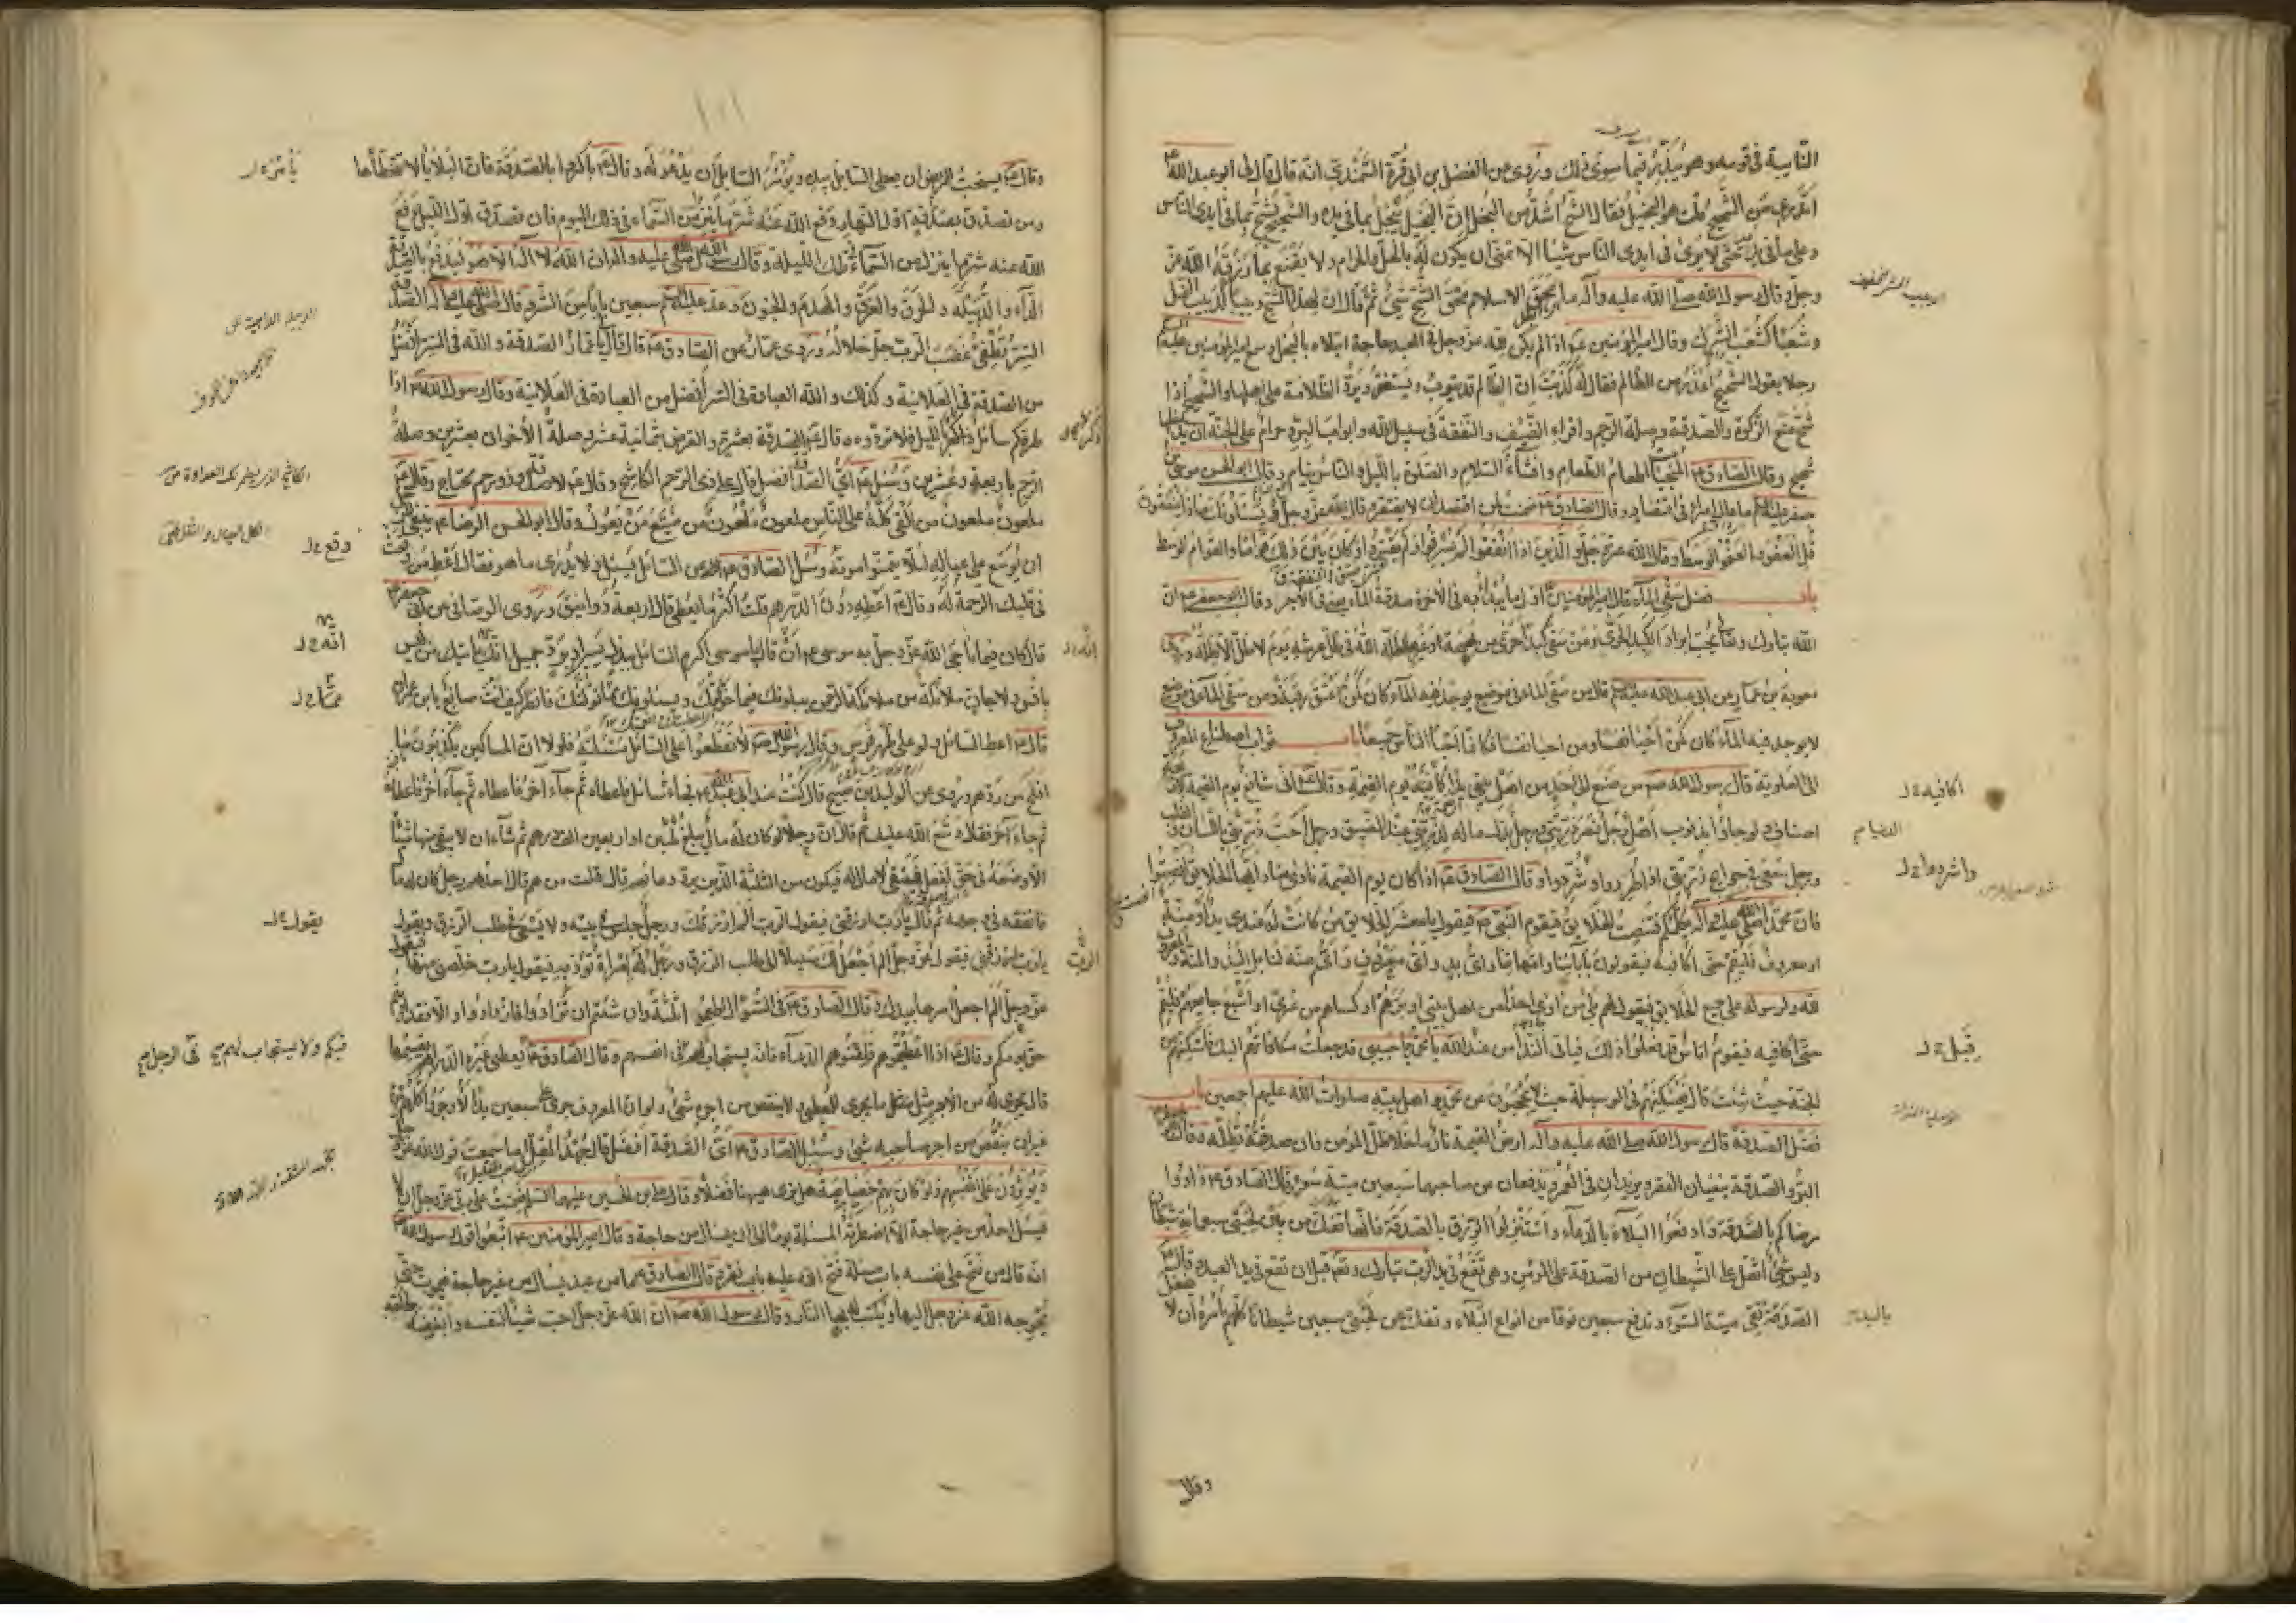 النايبة في قومه وهو يبذر فيما سوى ذلك وروى عن الفضل بن ابي قرة السمندي انه قال قال لي ابو عبد الله ع
اتدري من الشحيح قلت هو البخيل فقال الشح اشد من البخل ان البخيل يبخل بما في يده والشحيح يشح بما في ايدي الناس
وعلى ما في يده حتى لا يرى في ايدي الناس شيئا الا تمنى ان يكون له بالحل والحرام ولا يقنع بما رزقه الله عز
وجل وقال رسول الله صلى الله عليه وآله ما محق الاسلام محق الشح شيء ثم قال ان لهذا الشح دبيبا كدبيب النمل
وشعبا كشعب الشرك وقال امير المؤمنين ع اذا لم يكن لله عز وجل في العبد حاجة ابتلاه بالبخل وسمع امير المؤمنين عليه
رجلا يقول الشحيح اعذر من الظالم فقال له كذبت ان الظالم قد يتوب ويستغفر ويرد الظلامة على اهلها والشحيح اذا
شح منع الزكوة والصدقة وصلة الرحم واقراء الضيف والنفقة في سبيل الله وابواب البر وحرام على الجنة ان يدخلها
شحيح وقال الصادق ع المنجيات اطعام الطعام وافشاء السلام والصلوة بالليل والناس نيام وقال ابو الحسن موسى بن
جعفر عليه السلام ما عال امرؤ في اقتصاد وقال الصادق ع ضمنت لمن اقتصد ان لا يفتقر وقال الله عز وجل ويسئلونك ماذا ينفقون
قل العفو والعفو الوسط وقال الله عز وجل والذين اذا انفقوا لم يسرفوا ولم يقتروا وكان بين ذلك قواما والقوام الوسط
باب فضل سقي الماء قال امير المؤمنين ع اول ما يبدأ به في الآخرة صدقة الماء يعني في الاجر وقال ابو جعفر ع ان
الله تبارك وتعالى يحب ابراد الكبد الحرى ومن سقى كبدا حرى من بهيمة او غيرها اظله الله في ظل عرشه يوم لا ظل الا ظله وروى
معوية بن عمار عن ابي عبد الله عليه السلام قال من سقى الماء في موضع يوجد فيه الماء كان كمن اعتق رقبة ومن سقى الماء في موضع
لا يوجد فيه الماء كان كمن احيا نفسا ومن احيا نفسا فكانما احيا الناس جميعا باب ثواب اصطناع المعروف
الى العلوية قال رسول الله ص من صنع الى احد من اهل بيتي يدا كافيته يوم القيمة وقال ع اني شافع يوم القيمة لاربعة
اصناف ولو جاؤا بذنوب اهل الدنيا رجل نصر ذريتي ورجل بذل ماله لذريتي عند الضيق ورجل احب ذريتي باللسان والقلب
ورجل سعى في حوايج ذريتي اذا طردوا وشردوا وقال الصادق ع اذا كان يوم القيمة نادى مناد ايها الخلايق انصتوا
فان محمدا صلى الله عليه وآله يكلمكم فتنصت الخلايق فيقوم النبي ص فيقول يا معشر الخلايق من كانت له عندي يد او منة
او معروف فليقم حتى اكافيه فيقولون بآبائنا وامهاتنا واي يد واي معروف واي منة لنا بل اليد والمنة والمعروف
لله ولرسوله على جميع الخلايق فيقول لهم بلى من آوى احدا من اهل بيتي او برهم او كساهم من عرى او اشبع جايعهم فليقم
حتى اكافيه فيقوم اناس قد فعلوا ذلك فياتي النداء من عند الله يا محمد يا حبيبي قد جعلت مكافاتهم اليك فاسكنهم من
الجنة حيث شئت قال فيسكنهم في الوسيلة حيث لا يحجبون عن محمد واهل بيته صلوات الله عليهم اجمعين باب
فضل الصدقة قال رسول الله صلى الله عليه وآله ارض القيمة نار ما خلا ظل المؤمن فان صدقته تظله وقال
البر والصدقة ينفيان الفقر ويزيدان في العمر ويدفعان عن صاحبهما سبعين ميتة سوء وقال الصادق ع داووا
مرضاكم بالصدقة وادفعوا البلاء بالدعاء واستنزلوا الرزق بالصدقة فانها تفك من بين لحيي سبعمائة شيطان
وليس شيء اثقل على الشيطان من الصدقة على المؤمن وهي تقع في يد الرب تبارك وتعالى قبل ان تقع في يد العبد وقال ع
الصدقة باليد تقي ميتة السوء وتدفع سبعين نوعا من انواع البلاء وتفك عن لحيي سبعين شيطانا كلهم يأمره ان لا يفعل
وقال
١٠١
وقال ع يستحب للمريض ان يعطي السائل بيده ويؤمر السائل ان يدعو له وقال ع باكروا بالصدقة فان البلايا لا تتخطاها
ومن تصدق بصدقة اول النهار دفع الله عنه شر ما ينزل من السماء في ذلك اليوم فان تصدق اول الليل دفع
الله عنه شر ما ينزل من السماء في تلك الليلة وقال رسول الله صلى الله عليه وآله ان الله لا اله الا هو ليدفع بالصدقة
الداء والدبيلة والحرق والغرق والهدم والجنون وعد عليه السلام سبعين بابا من الشر وقال صلى الله عليه وآله الصدقة
السر تطفئ غضب الرب جل جلاله وروى عمار عن الصادق ع قال قال يا عمار الصدقة والله في السر افضل
من الصدقة في العلانية وكذلك والله العبادة في السر افضل من العبادة في العلانية وقال رسول الله ص اذا
طرقكم سائل ذكر بالليل فلا تردوه وقال ع الصدقة بعشرة والقرض بثمانية عشر وصلة الاخوان بعشرين وصلة
الرحم باربعة وعشرين وسئل ع اي الصدقة افضل قال على ذي الرحم الكاشح وقال ع لا صدقة وذو رحم محتاج وقال ع
ملعون ملعون من القى كله على الناس ملعون ملعون من ضيع من يعول وقال ابو الحسن الرضا ع ينبغي للرجل
ان يوسع على عياله لئلا يتمنوا موته وسئل الصادق ع عن السائل يسئل ولا يدرى ما هو فقال اعط من وقعت
في قلبك الرحمة له وقال ع اعطه دون الدرهم قلت اكثر ما يعطى قال اربعة دوانيق وروى الوصافي عن ابي جعفر ع
قال كان فيما ناجى الله عز وجل به موسى ع ان قال يا موسى اكرم السائل ببذل يسير او برد جميل انه ياتيك من ليس
بانس ولا جان ملائكة من ملائكة الرحمن يبلونك فيما خولتك ويسئلونك عما نولتك فانظر كيف انت صانع يا ابن عمران
قال ع اعط السائل ولو على ظهر فرس وقال رسول الله ص لا تقطعوا على السائل مسئلته فلولا ان المساكين يكذبون ما
افلح من ردهم وروى عن الوليد بن صبيح قال كنت عند ابي عبد الله ع فجاءه سائل فاعطاه ثم جاء آخر فاعطاه ثم جاء آخر فاعطاه
ثم جاء آخر فقال وسع الله عليك ثم قال ان رجلا لو كان له مال يبلغ ثلثين او اربعين الف درهم ثم شاء ان لا يبقى منها شيئا
الا وضعه في حق لفعل فيبقى لا مال له فيكون من الثلثة الذين يرد دعاؤهم قال قلت من هم قال احدهم رجل كان له مال
فانفقه في وجهه ثم قال يا رب ارزقني فيقول الرب الم ارزقك ورجل جلس في بيته ولا يسعى في طلب الرزق ويقول
يا رب ارزقني فيقول عز وجل الم اجعل لك سبيلا الى طلب الرزق ورجل له امرأة تؤذيه فيقول يا رب خلصني منها فيقول
عز وجل الم اجعل امرها بيدك وقال الصادق ع في السؤال اطعموا ثلثة وان شئتم ان تزدادوا فازدادوا والا فقد اديتم
حق يومكم وقال ع اذا اعطيتموهم فلقنوهم الدعاء فانه يستجاب لهم في انفسهم وقال الصادق ع في الرجل يعطى غيره الدراهم يقسمها
قال يجري له من الاجر مثل ما يجري للمعطي ولا ينقص من اجره شيء ولو ان المعروف جرى على سبعين يدا لأوجروا كلهم من
غير ان ينقص من اجر صاحبه شيء وسئل الصادق ع اي الصدقة افضل قال جهد المقل ما سمعت قول الله عز وجل
ويؤثرون على انفسهم ولو كان بهم خصاصة هل ترى هيهنا فضلا وقال علي بن الحسين عليهما السلام ضمنت على ربي عز وجل ان لا
يسئل احد من غير حاجة الا اضطرته المسئلة يوما الى ان يسال من حاجة وقال امير المؤمنين ع اتبعوا قول رسول الله ص
انه قال من فتح على نفسه باب مسئلة فتح الله عليه باب فقر وقال الصادق ع ما من عبد يسال من غير حاجة فيموت حتى
يحوجه الله عز وجل اليها ويكتب له بها النار وقال رسول الله ص ان الله عز وجل احب شيئا لنفسه وابغضه لخلقه